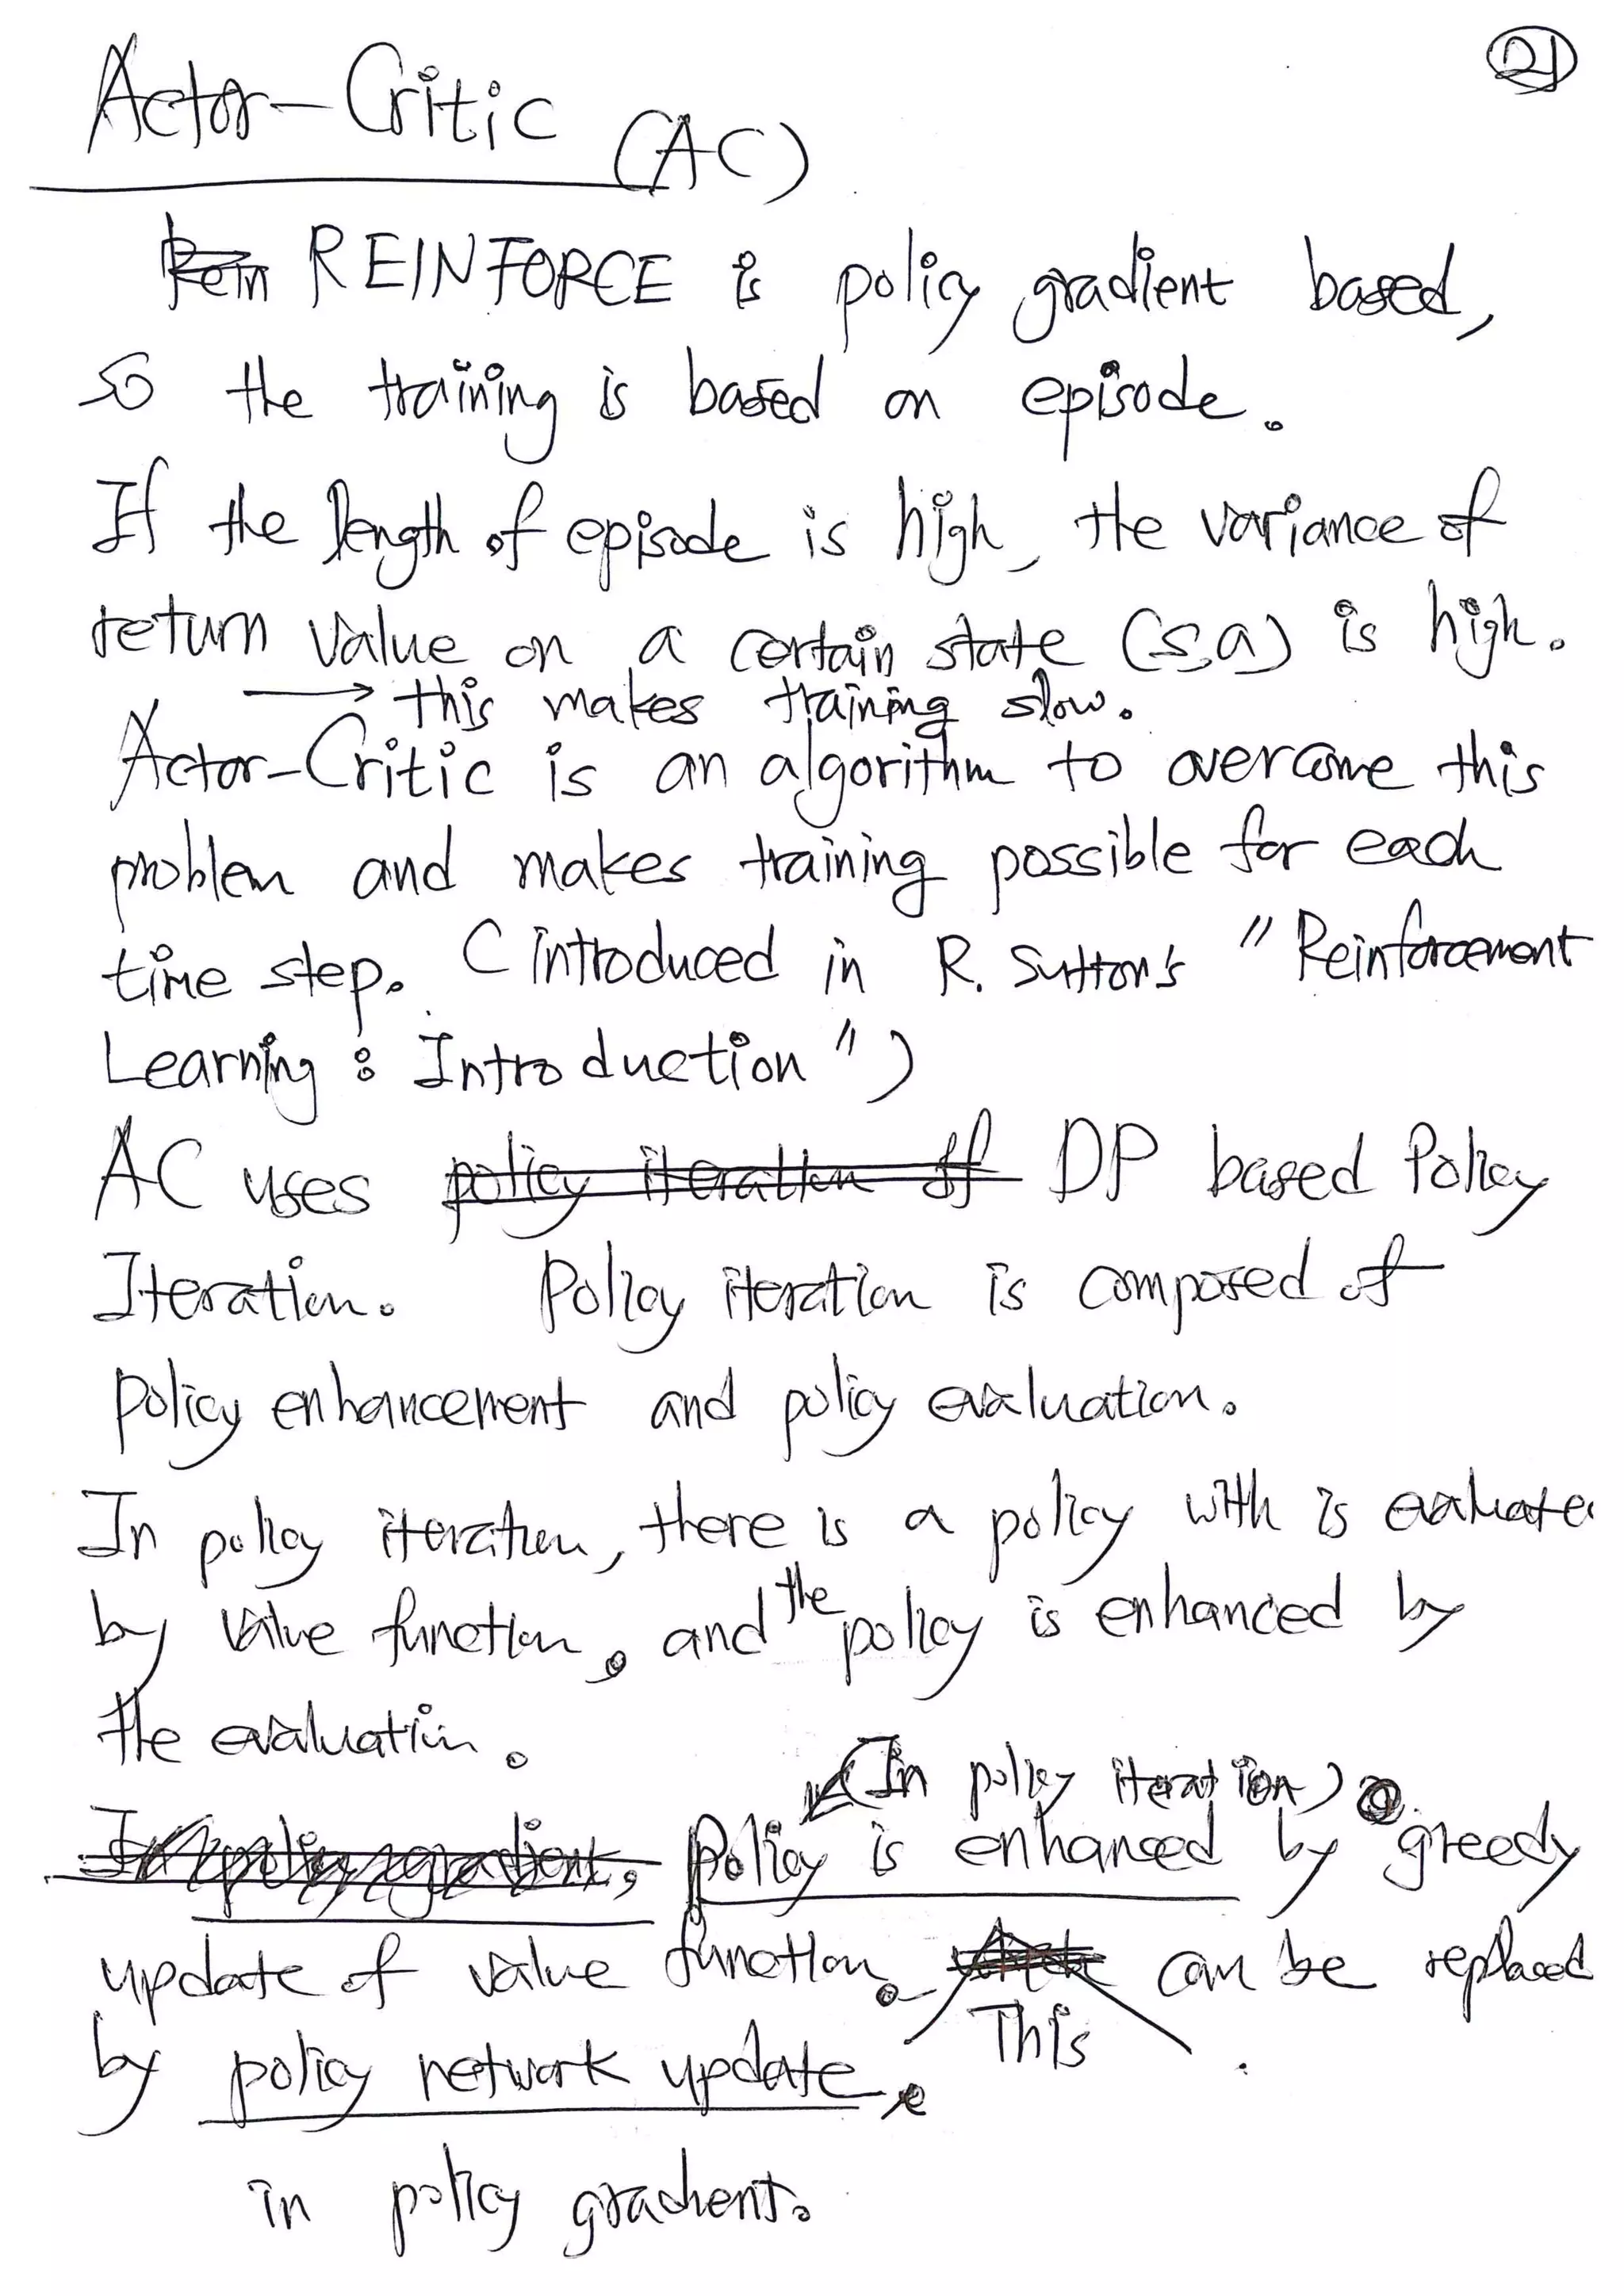 21
Actor-Critic (AC)
Rein REINFORCE is policy gradient based,
so the training is based on episode.
If the length of episode is high, the variance of
return value on a certain state (s,a) is high.
→ this makes training slow.
Actor-Critic is an algorithm to overcome this
problem and makes training possible for each
time step. (introduced in R. Sutton's "Reinforcement
Learning: Introduction")
AC uses policy iteration of DP based Policy
Iteration. Policy iteration is composed of
policy enhancement and policy evaluation.
In policy iteration, there is a policy with is evaluate
by value function, and the policy is enhanced by
the evaluation.
(In policy iteration)
In policy gradient, Policy is enhanced by greedy
update of value function. This can be replaced
by policy network update
in policy gradient.